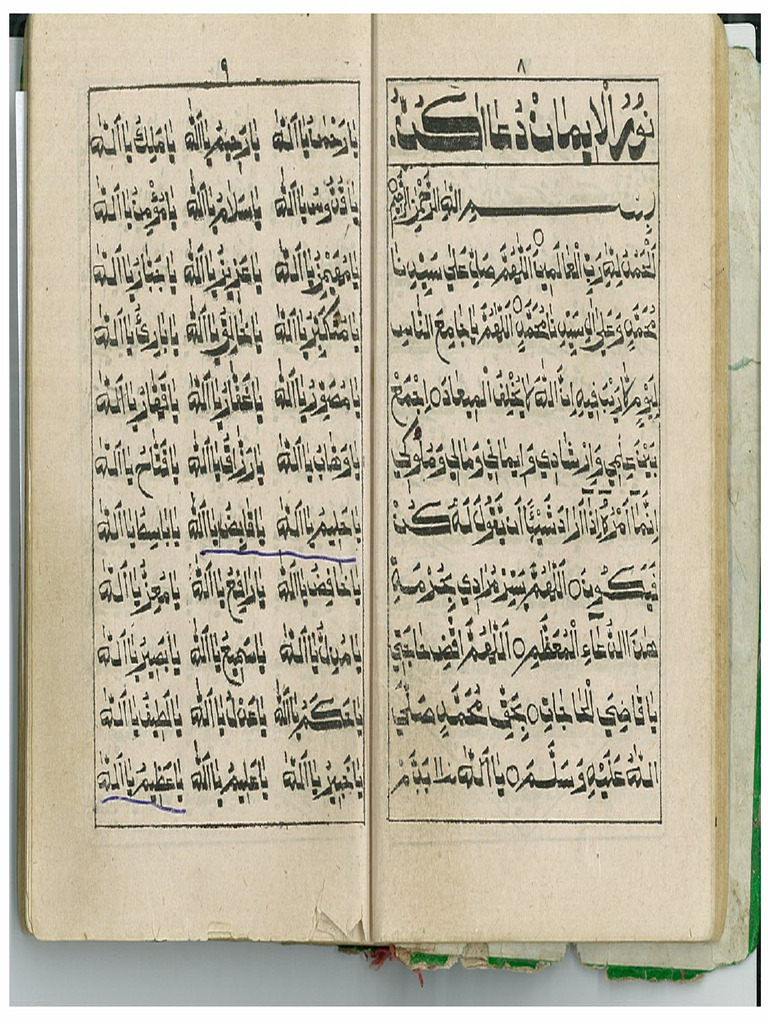 ٨
نُورُ الْإِيمَانْ دُعَاا كُنْ.
بِسْــــــمِ اللّٰهِ الرَّحْمٰنِ الرَّحِيْمِ
اَلْحَمْدُ لِلّٰهِ رَبِّ الْعَالَمِيْنَ اَللّٰهُمَّ صَلِّ عَلٰى سَيِّدِنَا
مُحَمَّدٍ وَعَلٰى اٰلِ سَيِّدِنَا مُحَمَّدٍ ○ اَللّٰهُمَّ يَا جَامِعَ النَّاسِ
لِيَوْمٍ لَا رَيْبَ فِيهِ اِنَّ اللّٰهَ لَا يُخْلِفُ الْمِيعَادَ ○ اِجْمَعْ
بَيْنَ عِلْمِي وَاِرْشَادِي وَاِيمَانِي وَمَالِي وَمُلُوكِي
اِنَّمَآ اَمْرُهٗٓ اِذَآ اَرَادَ شَيْئًا اَنْ يَقُوْلَ لَهٗ كُـنْ
فَيَكُوْنُ ○ اَللّٰهُمَّ يَسِّرْ مُرَادِي بِحُرْمَةِ
هٰذَا الدُّعَاءِ الْمُعَظَّمِ ○ اَللّٰهُمَّ اقْضِ حَاجَتِي
يَا قَاضِيَ الْحَاجَاتِ ○ بِحَقِّ مُحَمَّدٍ صَلَّى
اللّٰهُ عَلَيْهِ وَسَلَّـمَ ○ يَا اَللّٰهُ
٩
يَا رَحْمٰنُ يَا اَللّٰهُ يَا رَحِيْمُ يَا اَللّٰهُ يَا مَلِكُ يَا اَللّٰهُ
يَا قُدُّوْسُ يَا اَللّٰهُ يَا سَلَامُ يَا اَللّٰهُ يَا مُؤْمِنُ يَا اَللّٰهُ
يَا مُهَيْمِنُ يَا اَللّٰهُ يَا عَزِيْزُ يَا اَللّٰهُ يَا جَبَّارُ يَا اَللّٰهُ
يَا مُتَكَبِّرُ يَا اَللّٰهُ يَا خَالِقُ يَا اَللّٰهُ يَا بَارِئُ يَا اَللّٰهُ
يَا مُصَوِّرُ يَا اَللّٰهُ يَا غَفَّارُ يَا اَللّٰهُ يَا قَهَّارُ يَا اَللّٰهُ
يَا وَهَّابُ يَا اَللّٰهُ يَا رَزَّاقُ يَا اَللّٰهُ يَا فَتَّاحُ يَا اَللّٰهُ
يَا حَلِيْمُ يَا اَللّٰهُ يَا قَابِضُ يَا اَللّٰهُ يَا بَاسِطُ يَا اَللّٰهُ
يَا خَافِضُ يَا اَللّٰهُ يَا رَافِعُ يَا اَللّٰهُ يَا مُعِزُّ يَا اَللّٰهُ
يَا مُذِلُّ يَا اَللّٰهُ يَا سَمِيْعُ يَا اَللّٰهُ يَا بَصِيْرُ يَا اَللّٰهُ
يَا حَكَمُ يَا اَللّٰهُ يَا عَدْلُ يَا اَللّٰهُ يَا لَطِيْفُ يَا اَللّٰهُ
يَا خَبِيْرُ يَا اَللّٰهُ يَا عَلِيْمُ يَا اَللّٰهُ يَا عَظِيْمُ يَا اَللّٰهُ